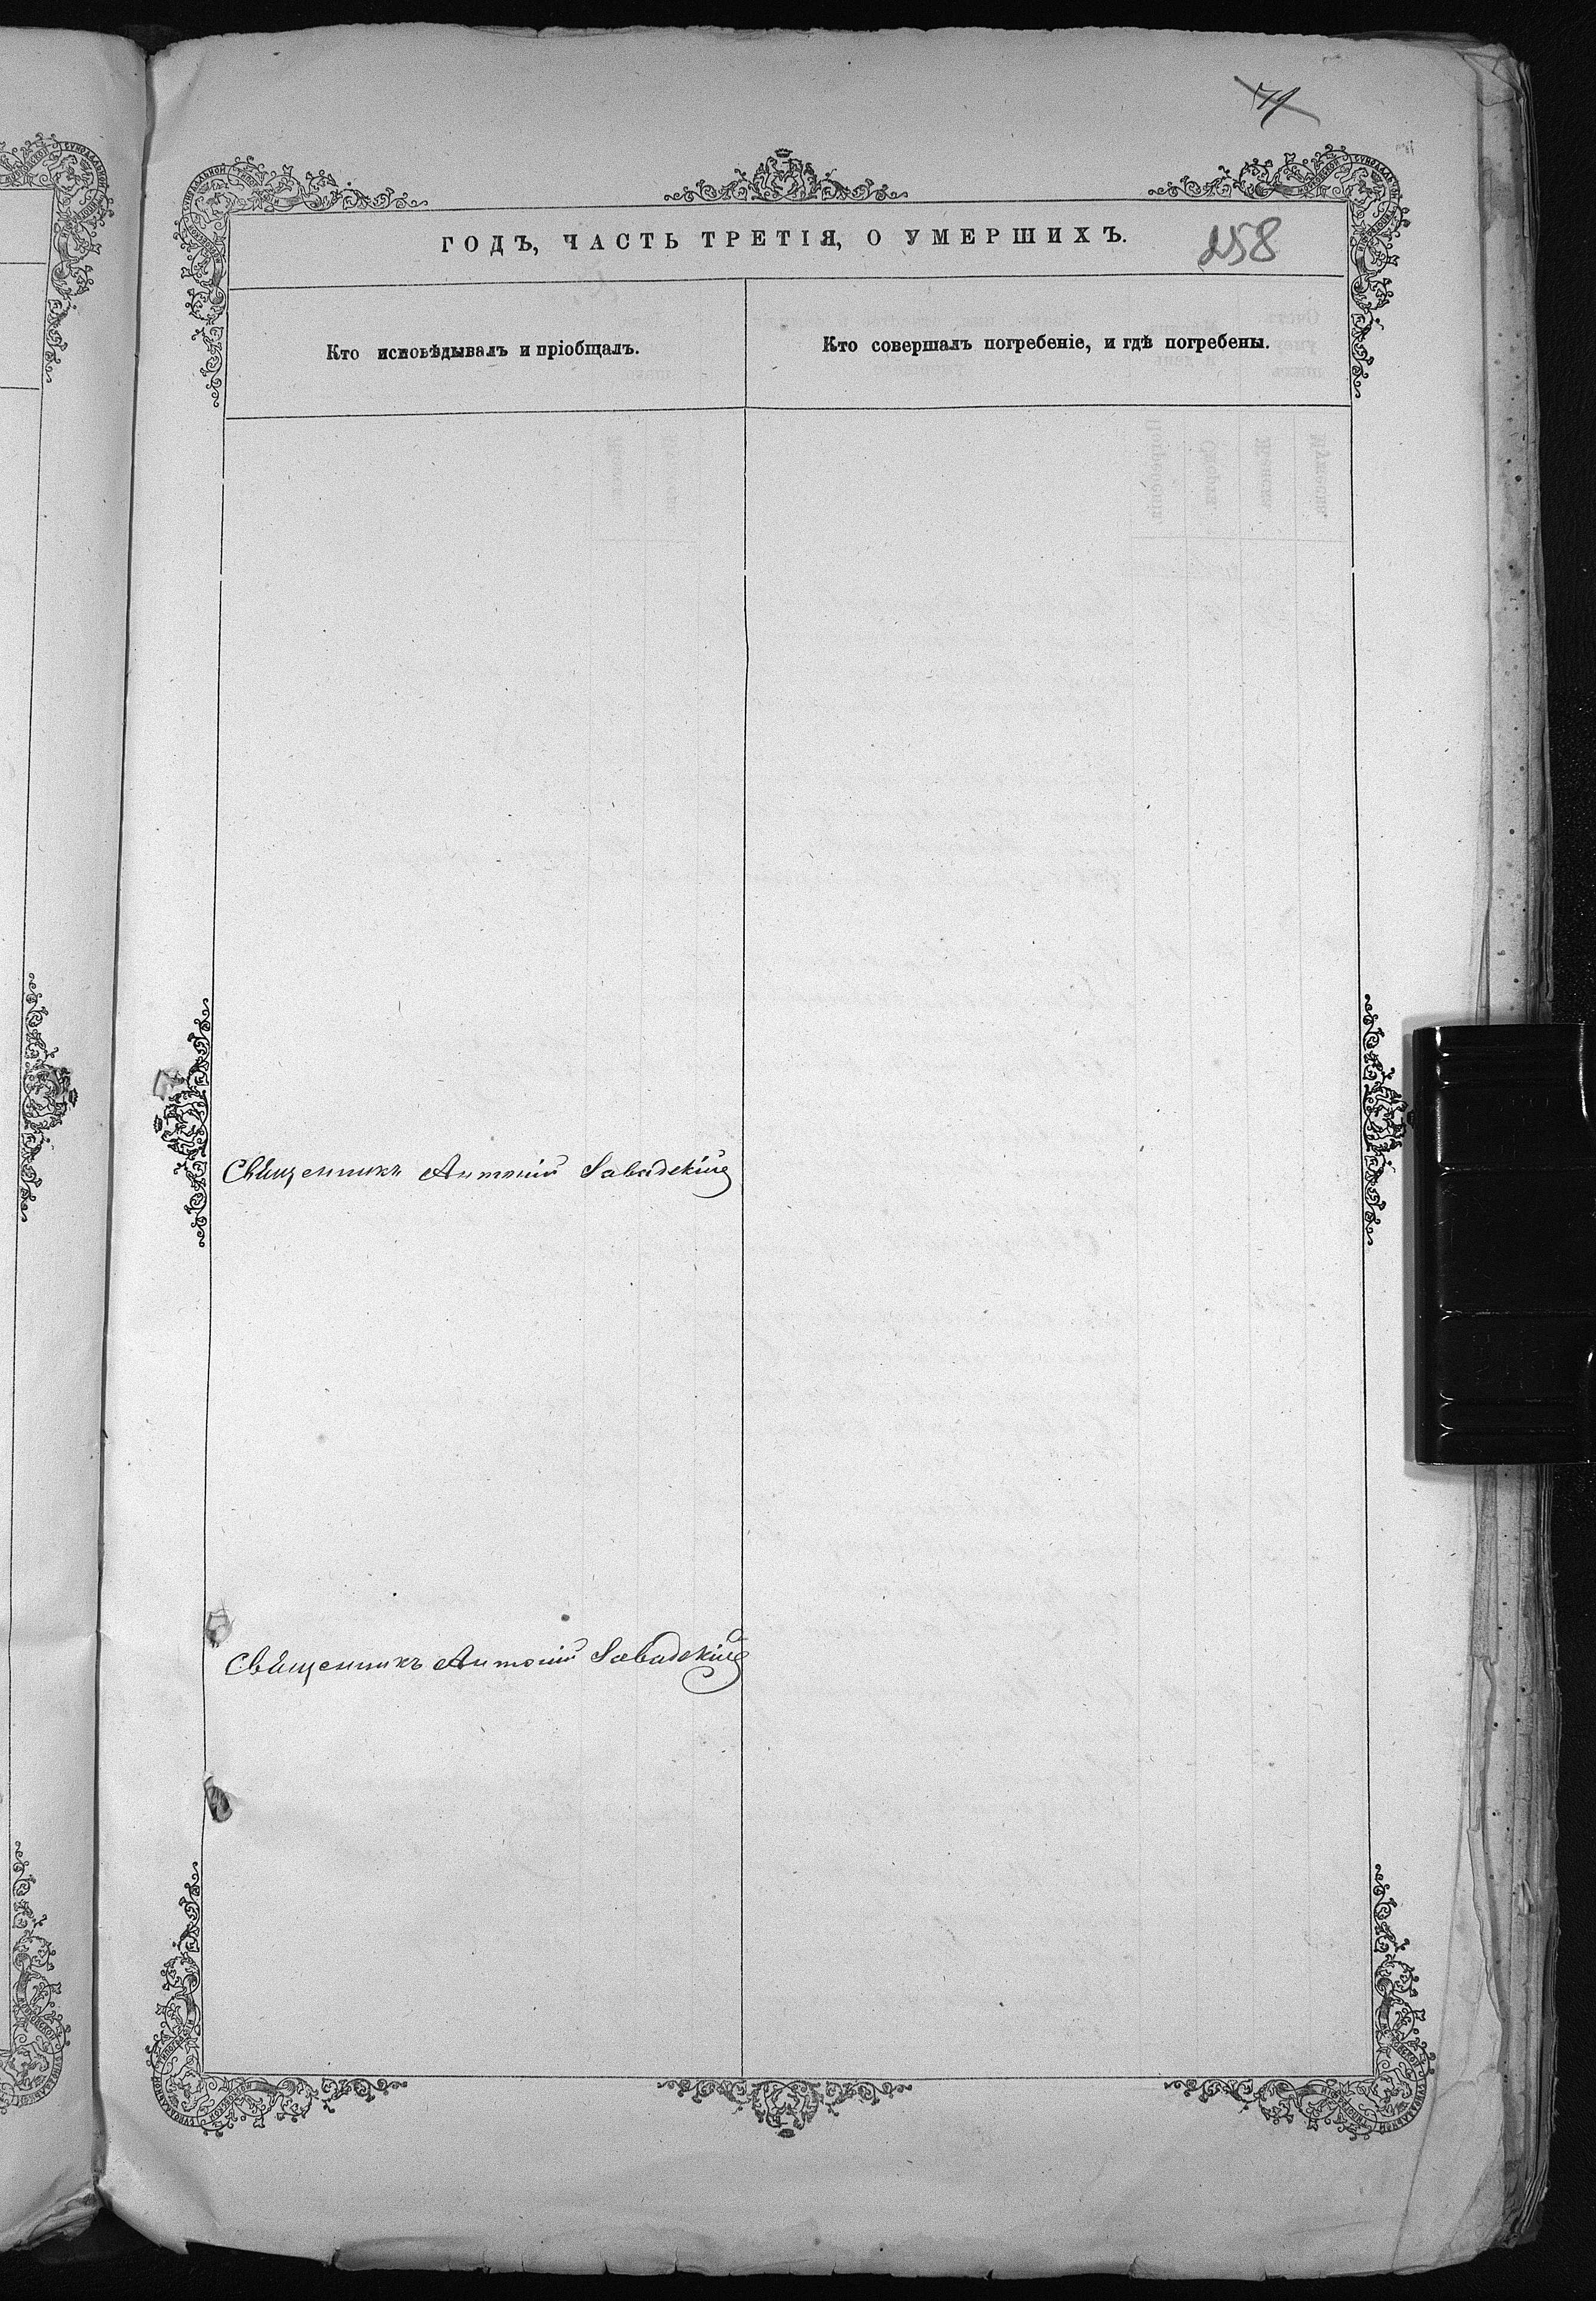 79
ГОДЪ, ЧАСТЬ ТРЕТІЯ, О УМЕРШИХЪ.
258
Кто исповѣдывалъ и пріобщалъ.
Кто совершалъ погребеніе, и гдѣ погребены.
Священникъ Антоній Савадскій
Священникъ Антоній Савадскій